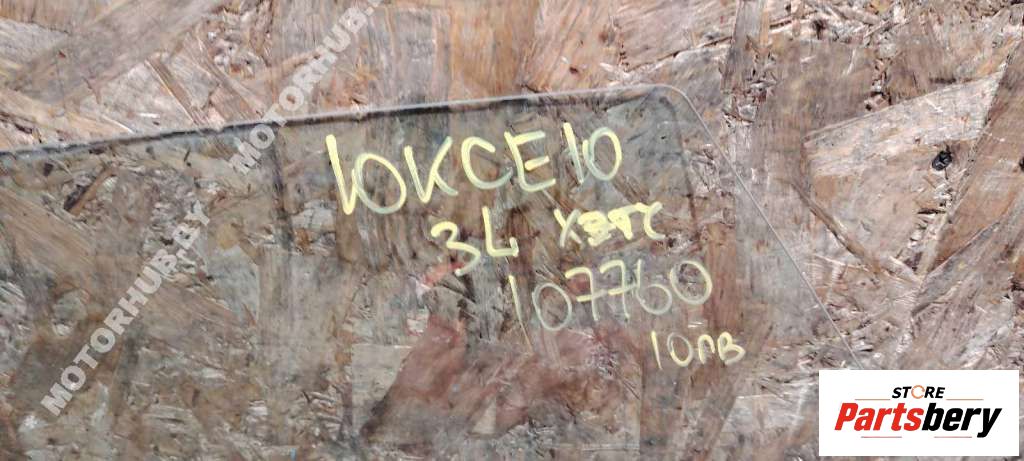 MOTORHUB.LY
MOTORHUB.LY
10KCE10
3L ХЭТС
107760
10ПВ
STORE
Partsbery